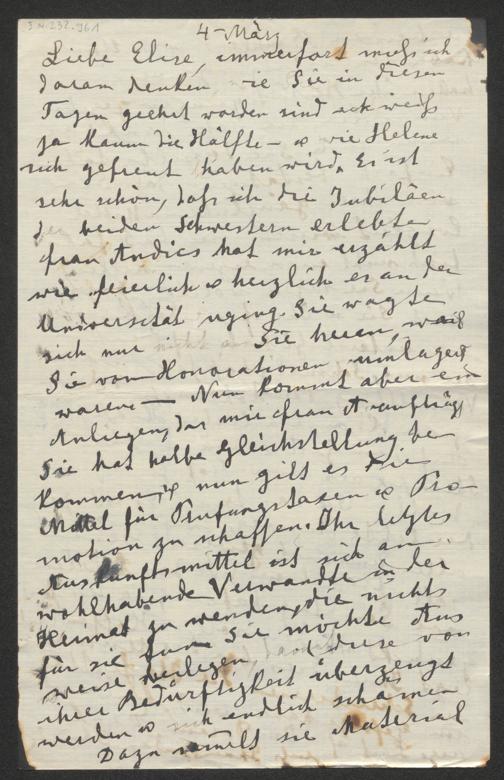 J.N. 232.961
4. März
Liebe Elise, immerfort muß ich
daran denken wie Sie in diesen
Tagen geehrt worden sind ich weiß
ja kaum die Hälfte – & wie Helene
sich gefreut haben wird. Es ist
sehr schön, daß ich die Jubiläen
der beiden Schwestern erlebte
Frau Andics hat mir erzählt
wie feierlich & herzlich es an der
Universität zuging. Sie wagte
sich nur nicht an Sie heran, weil
Sie von Honorationen umlagert
waren — Nun kommt aber ein
Anliegen, das mir Frau A. aufträgt
Sie hat halbe Gleichstellung be
kommen, & nun gilt es die
Mittel für Prüfungstaxen & Pro-
motion zu schaffen. Ihr letztes
Auskunftsmittel ist sich an
wohlhabende Verwandte in der
Heimat zu wenden, die nichts
für sie tun Sie möchte Aus
weise vorlegen, damit diese von
ihrer Bedürftigkeit überzeugt
werden & sich endlich schämen
Dazu sammelt sie Material